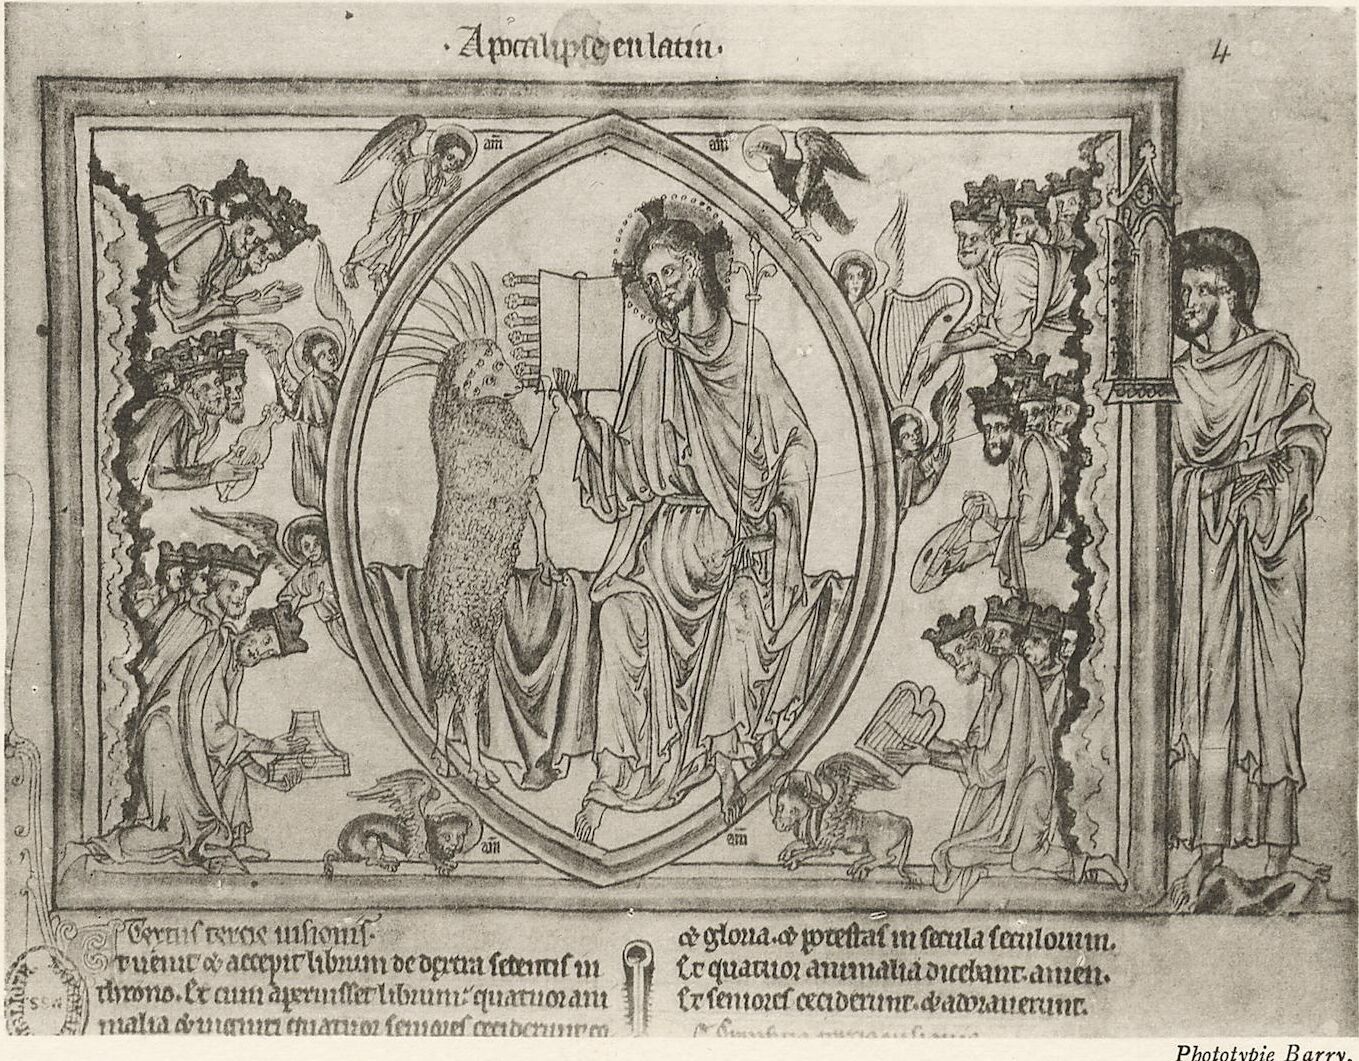 · Apocalipse en latin ·
4
am̄
am̄
am̄
am̄
Textus tercie uisionis.
t uenit & accepit librum de dextra sedentis in
throno. Et cum aperuisset librum: quatuor ani
malia & uiginti quatuor seniores ceciderunt co
& gloria. & potestas in secula seculorum.
Et quatuor animalia dicebant. amen.
Et seniores ceciderunt. & adorauerunt.
Phototypie Barry.